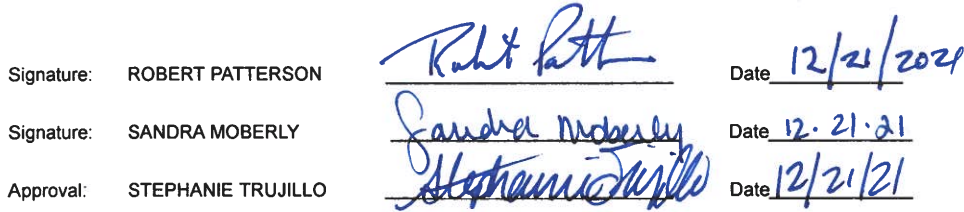 Signature: ROBERT PATTERSON Robert Patt Date 12/21/2021
Signature: SANDRA MOBERLY Sandra Moberly Date 12.21.21
Approval: STEPHANIE TRUJILLO Stephanie Trujillo Date 12/21/21